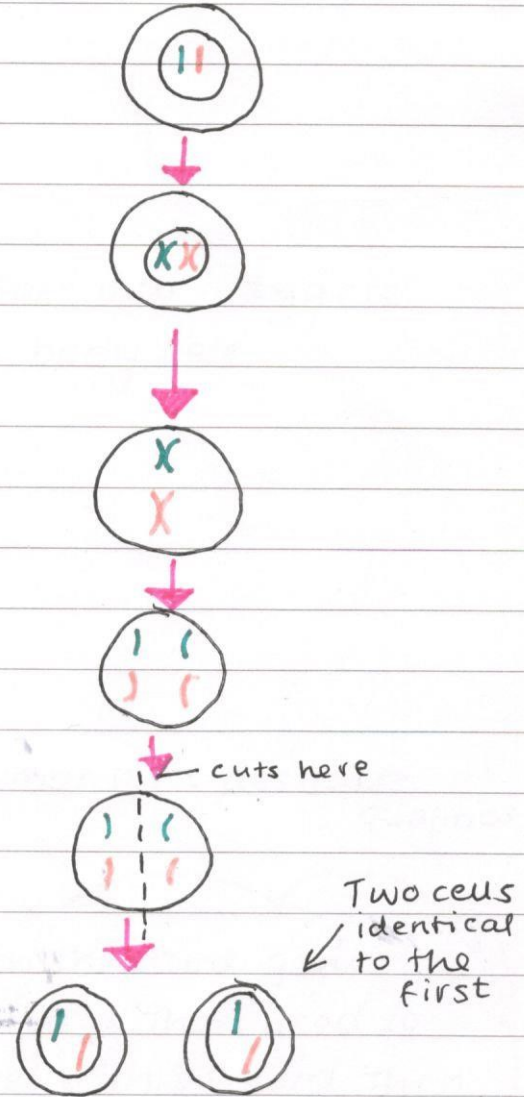 cuts here
Two cells
identical
to the
first